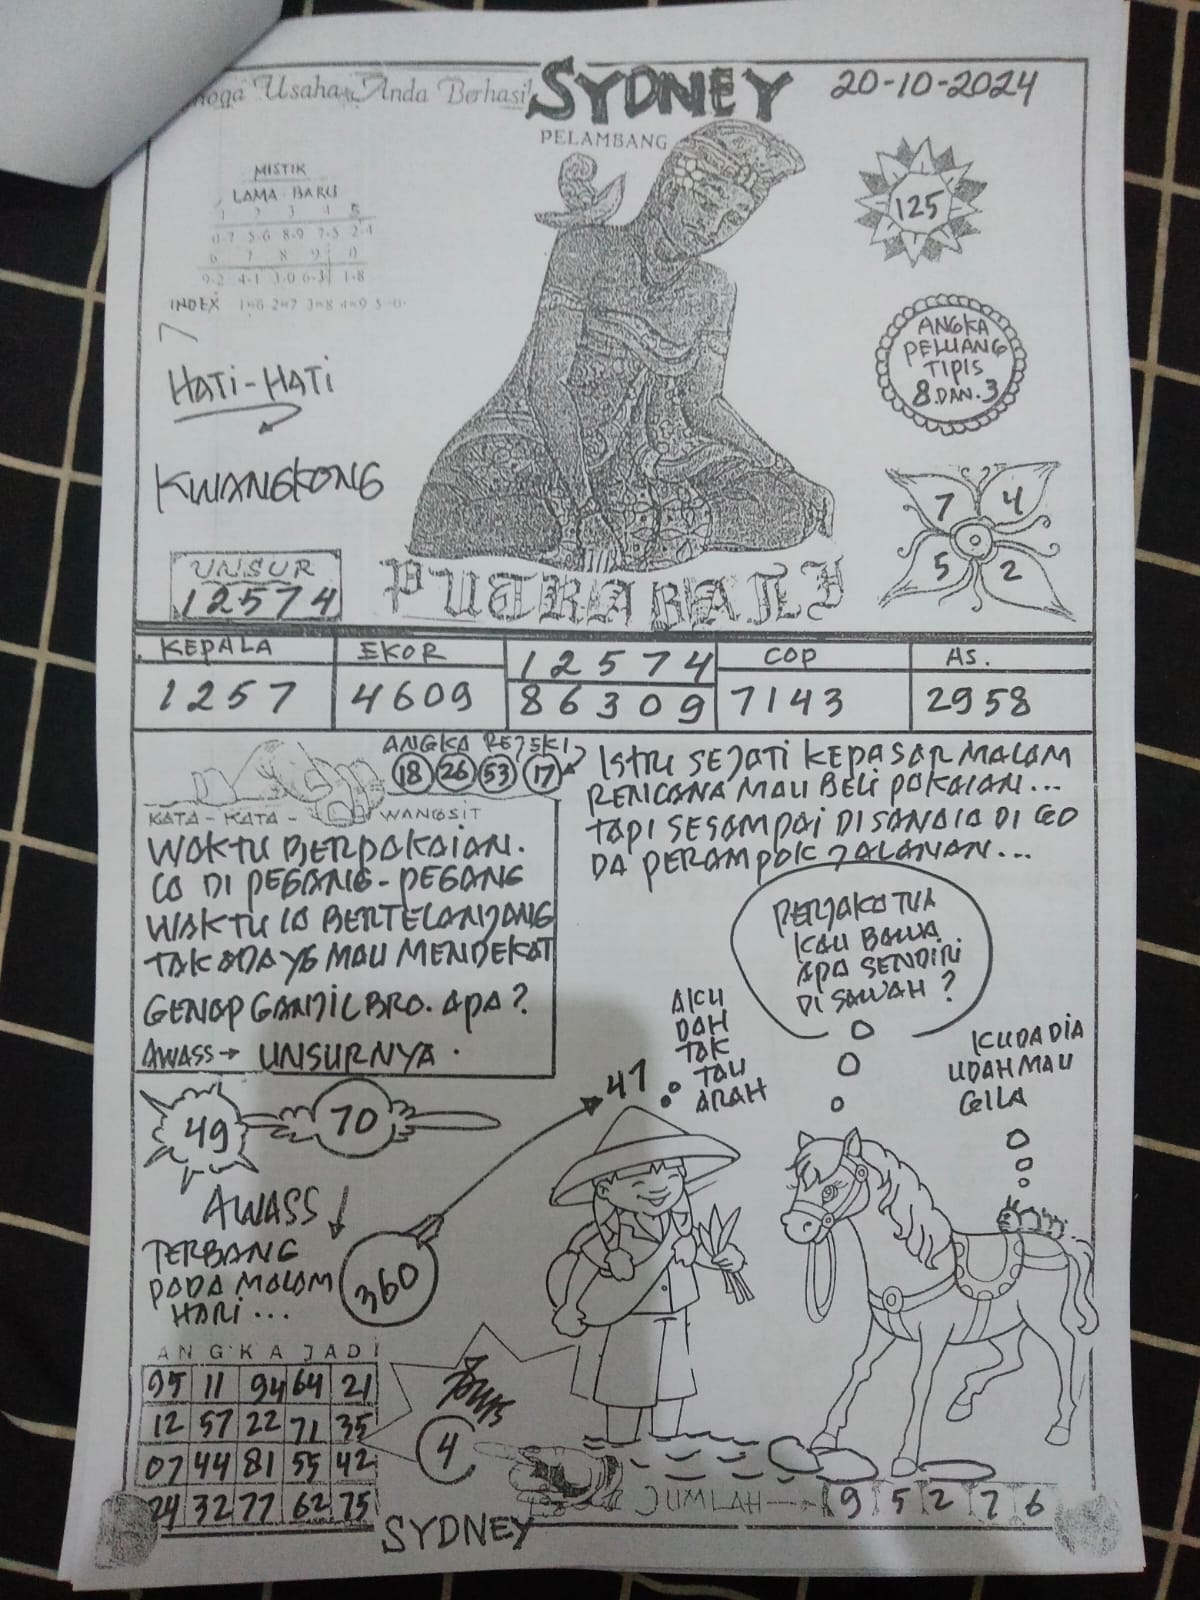 Usaha Anda Berhasil
SYDNEY
20-10-2024
PELAMBANG
MISTIK
LAMA - BARU
1 2 3 4 5
0-7 5-6 8-9 7-5 2-4
6 7 8 9 0
9-2 4-1 3-0 6-3 1-8
INDEX 1=6 2=7 3=8 4=9 5=0
125
ANGKA
PELUANG
TIPIS
8 DAN 3
HATI-HATI
KWANGKONG
7 4
5 2
UNSUR
12574
PUTRA BALI
KEPALA EKOR 12574 COP AS.
1257 4609 86309 7143 2958
ANGKA REJEKI
18 26 53 17
KATA - KATA - WANGSIT
WAKTU BERPAKAIAN.
IA DI PEGANG-PEGANG
WAKTU IA BERTELANJANG
TAK ADA YG MAU MENDEKAT
GENAP GANJIL BRO. APA?
AWASS → UNSURNYA.
ISTRI SEJATI KEPASAR MALAM
RENCANA MAU BELI PAKAIAN...
TAPI SESAMPAI DISANA IA DI GO
DA PERAMPOK JALANAN...
PERJAKA TUA
KAU BAWA
APA SENDIRI
DI SAWAH?
AKU
DAH
TAK
TAU
ARAH
KUDA DIA
UDAH MAU
GILA
47
49 70
AWASS
TERBANG
PADA MALAM
HARI...
360
ANGKA JADI
95 11 94 64 21
12 57 22 71 35
07 44 81 55 42
24 32 77 62 75
4
JUMLAH → 9 5 2 7 6
SYDNEY